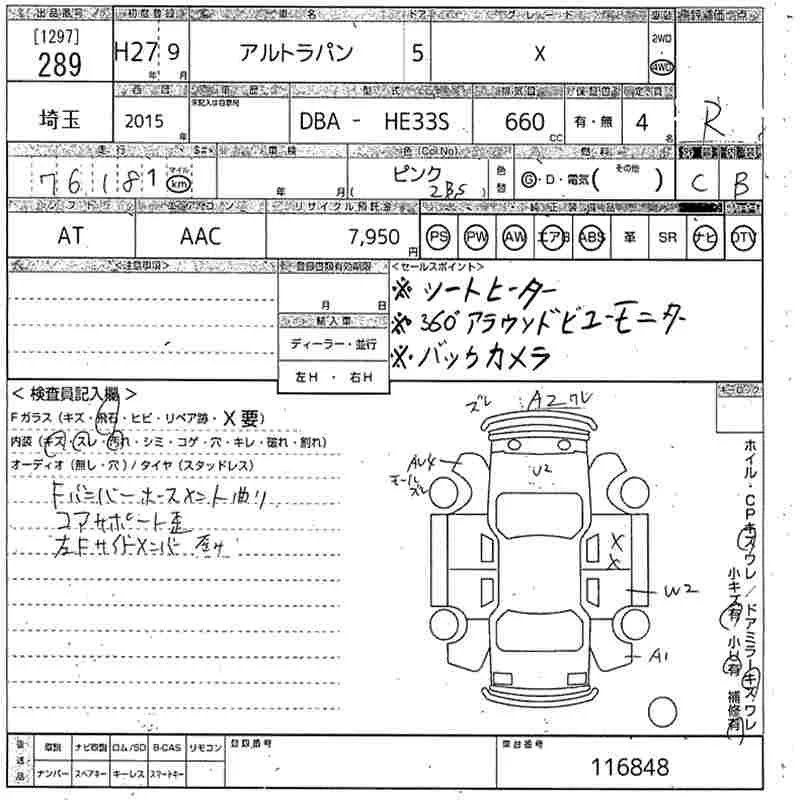 出品番号 初度登録 車名 ドア グレード 駆動 評価点
[1297]
289 H27年 9月 アルトラパン 5 X 2WD・4WD R
会場 西暦 車歴 型式 排気量 保証書 定員
埼玉 2015年 DBA - HE33S 660CC 有・無 4
走行 車検 色(Col No) 燃料 外装 内装
76181 マイル km 年 月 ピンク ( 2BS ) 色替 G・D・電気( その他 ) C B
シフト エアコン リサイクル預託金 純正装備品
AT AAC 7,950円 PS PW AW エアB ABS 革 SR ナビ DTV
<注意事項> 登録書類有効期限 <セールスポイント>
月 日 ※ シートヒーター
輸入車 ※ 360°アラウンドビューモニター
ディーラー・並行 ※ バックカメラ
左H ・ 右H
キーロック
< 検査員記入欄 >
Fガラス (キズ・飛石・ヒビ・リペア跡・X要)
内装 (キズ・スレ・汚れ・シミ・コゲ・穴・キレ・破れ・割れ)
オーディオ (無し・穴) / タイヤ (スタッドレス)
Fバンパーホースメント曲り
コアサポート歪
左Fサイドメンバー
ズレ A2 ワレ
AU4 U2
モールズレ
X
X
W2
A1
ホイル・CPキズワレ / ドアミラーキズワレ
小キズ有 小U有 補修有
後送品 取説 ナビ取説 ロム/SD B-CAS リモコン 登録番号 車台番号
ナンバー スペアキー キーレス スマートキー 116848